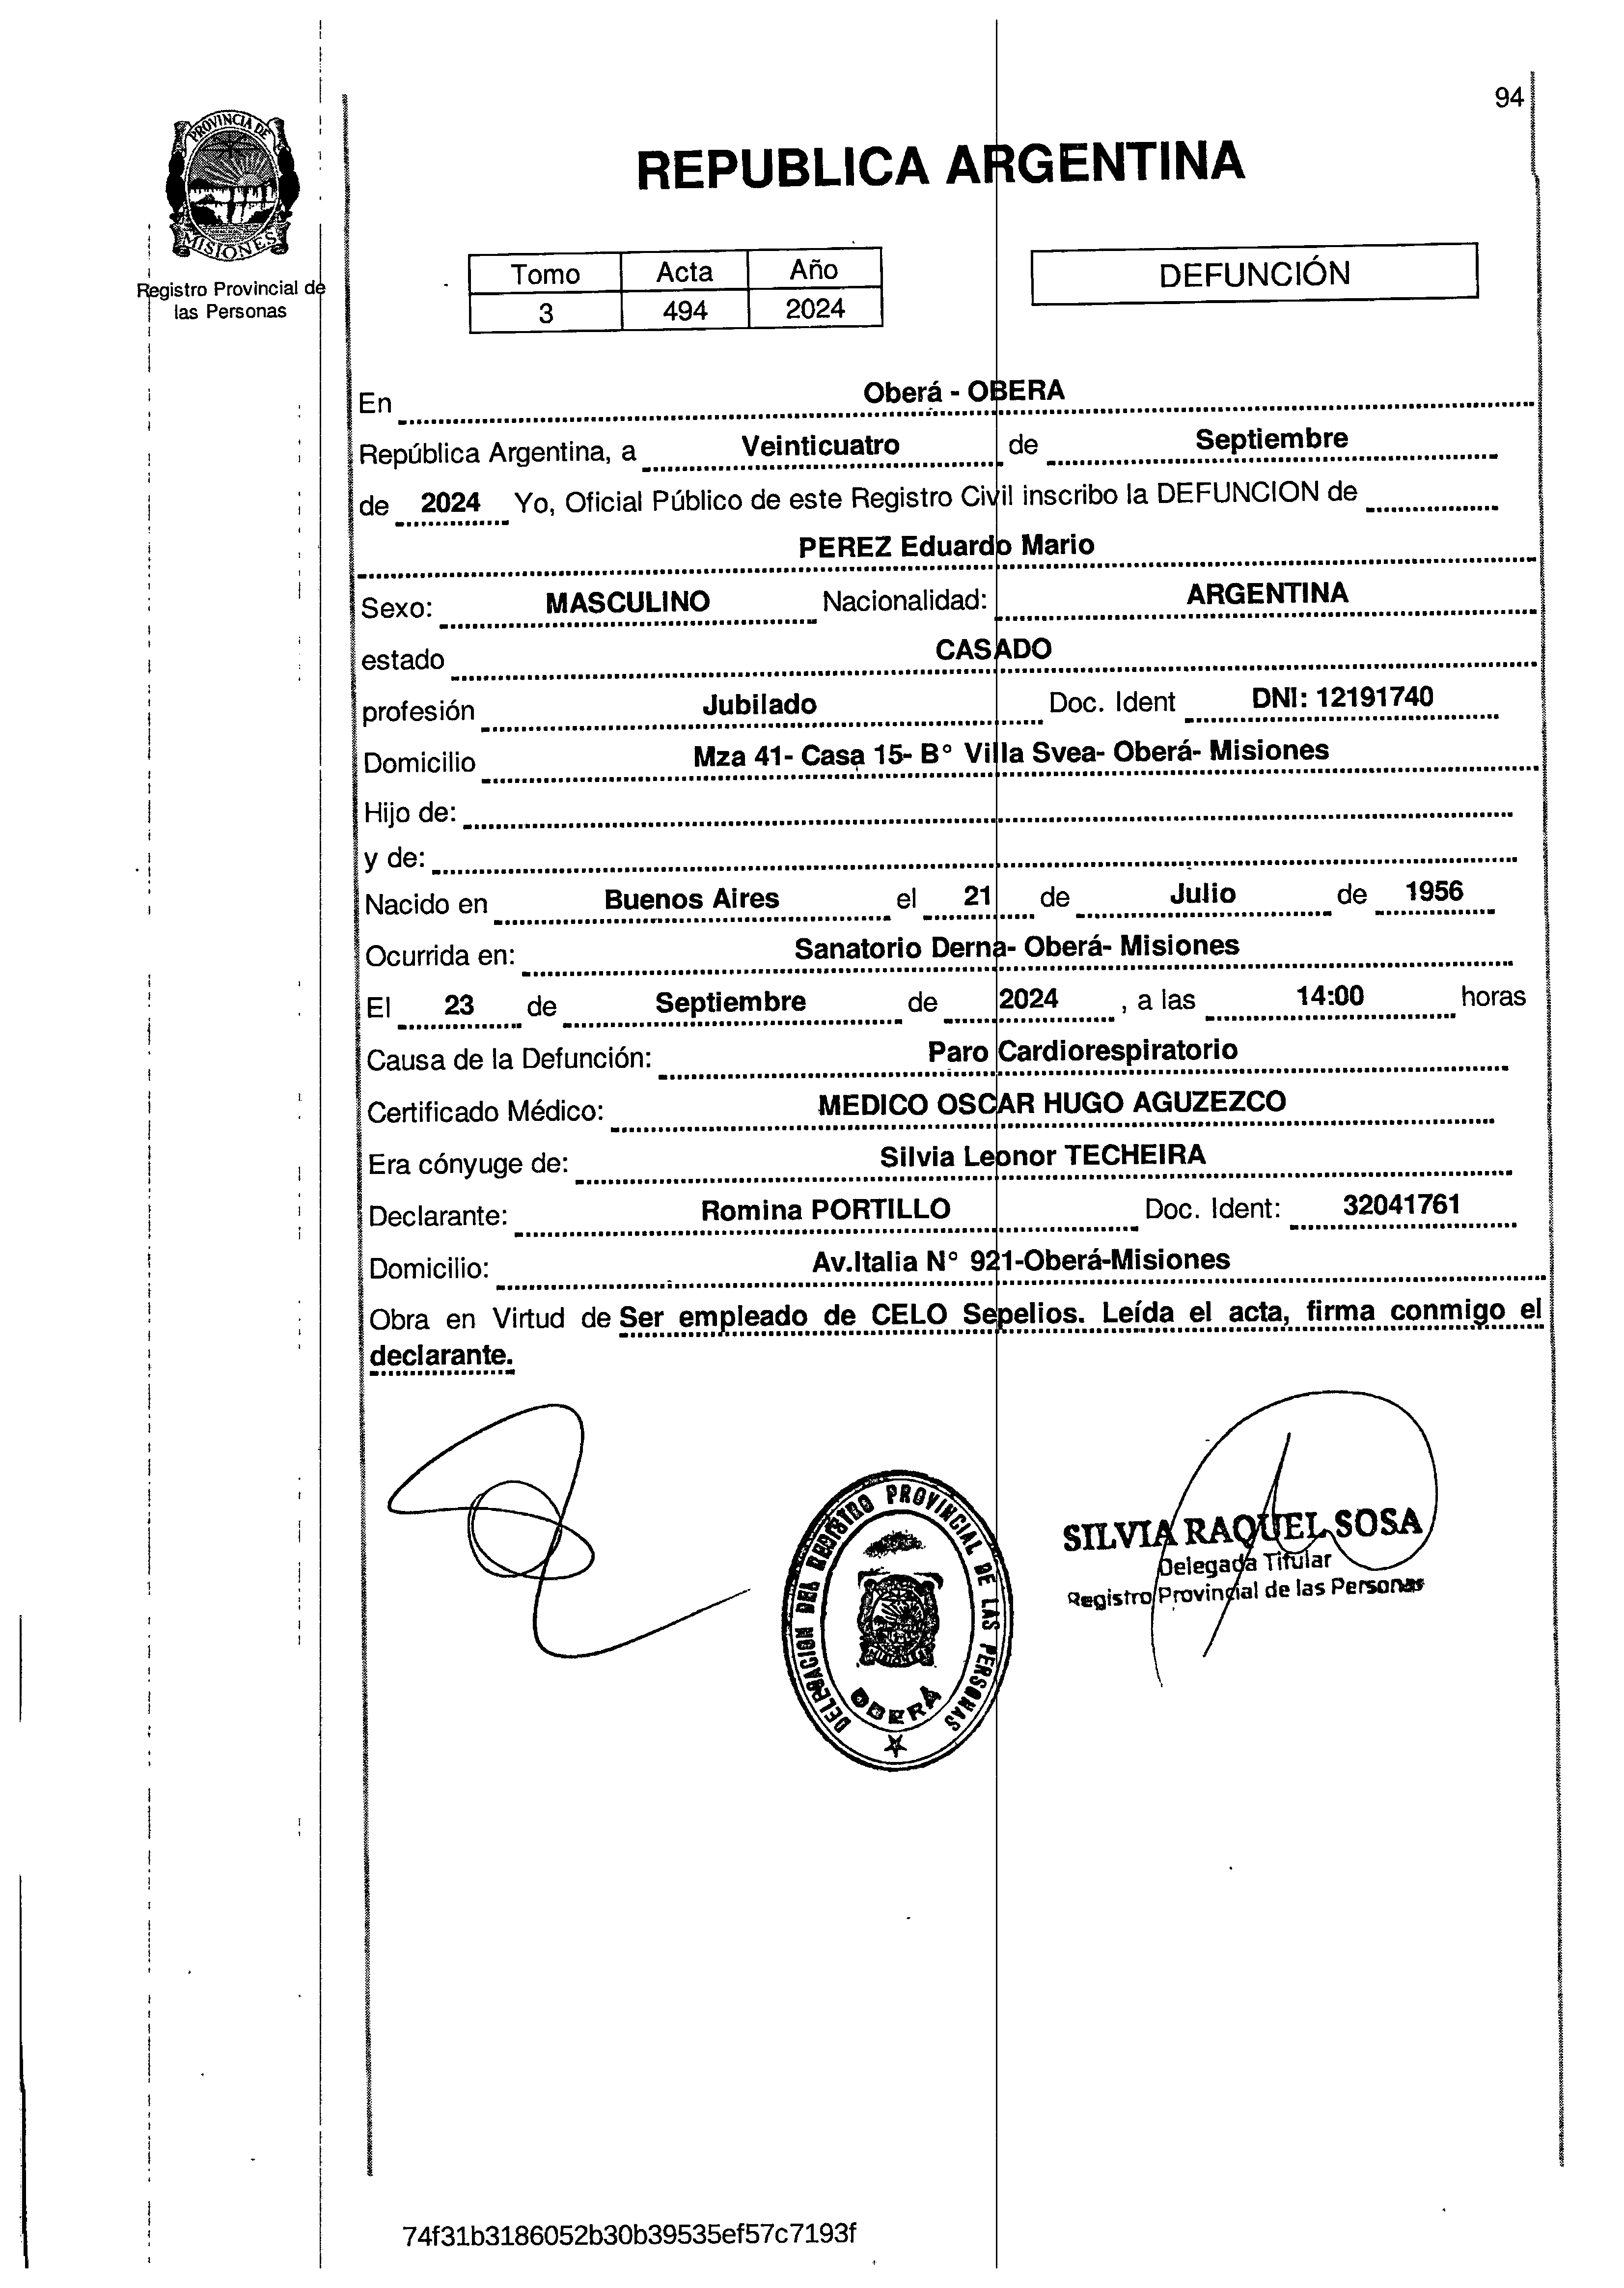 94
PROVINCIA DE
MISIONES
Registro Provincial de
las Personas
REPUBLICA ARGENTINA
Tomo Acta Año
3 494 2024
DEFUNCIÓN
En Oberá - OBERA
República Argentina, a Veinticuatro de Septiembre
de 2024 Yo, Oficial Público de este Registro Civil inscribo la DEFUNCION de
PEREZ Eduardo Mario
Sexo: MASCULINO Nacionalidad: ARGENTINA
estado CASADO
profesión Jubilado Doc. Ident DNI: 12191740
Domicilio Mza 41- Casa 15- B° Villa Svea- Oberá- Misiones
Hijo de:
y de:
Nacido en Buenos Aires el 21 de Julio de 1956
Ocurrida en: Sanatorio Derna- Oberá- Misiones
El 23 de Septiembre de 2024 , a las 14:00 horas
Causa de la Defunción: Paro Cardiorespiratorio
Certificado Médico: MEDICO OSCAR HUGO AGUZEZCO
Era cónyuge de: Silvia Leonor TECHEIRA
Declarante: Romina PORTILLO Doc. Ident: 32041761
Domicilio: Av.Italia N° 921-Oberá-Misiones
Obra en Virtud de Ser empleado de CELO Sepelios. Leída el acta, firma conmigo el
declarante.
DELEGACION DEL REGISTRO PROVINCIAL DE LAS PERSONAS
OBERÁ
SILVIA RAQUEL SOSA
Delegada Titular
Registro Provincial de las Personas
74f31b3186052b30b39535ef57c7193f